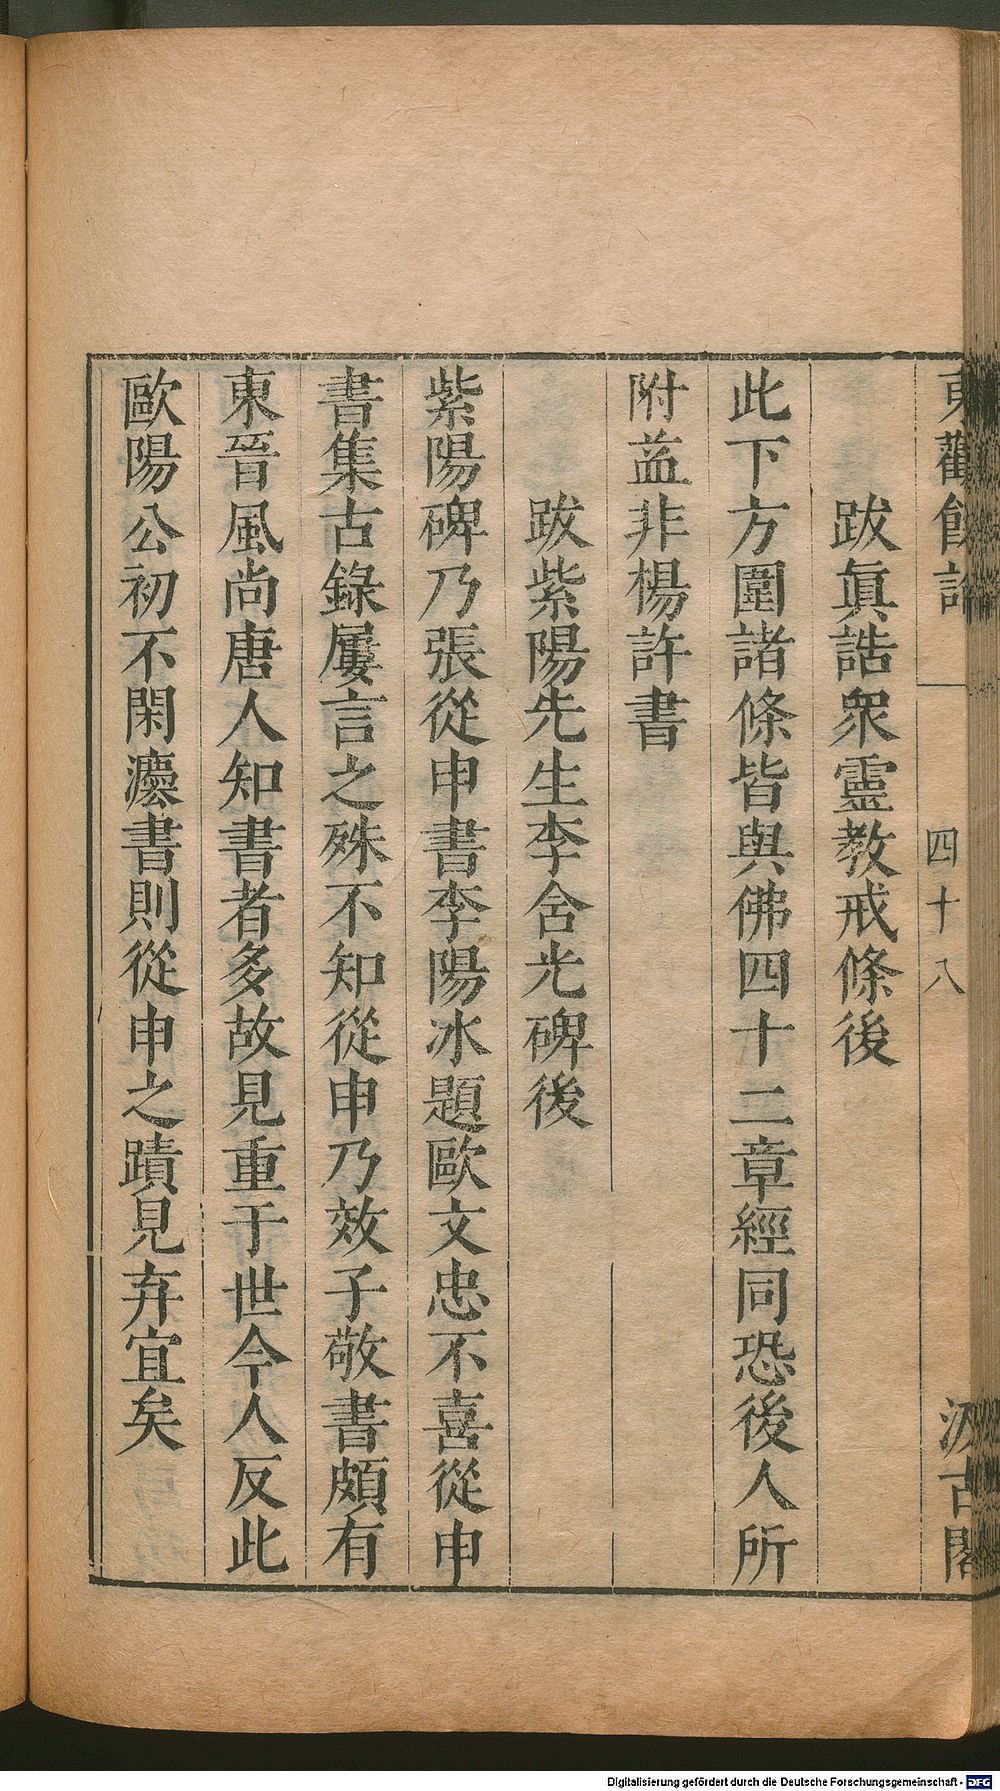 東觀餘論
四十八
汲古閣
跋眞誥衆靈教戒條後
此下方圓諸條皆與佛四十二章經同恐後人所
附益非楊許書
跋紫陽先生李含光碑後
紫陽碑乃張從申書李陽冰題歐文忠不喜從申
書集古錄屢言之殊不知從申乃效子敬書頗有
東晉風尚唐人知書者多故見重于世今人反此
歐陽公初不閑灋書則從申之蹟見弃宜矣
Digitalisierung gefördert durch die Deutsche Forschungsgemeinschaft - DFG